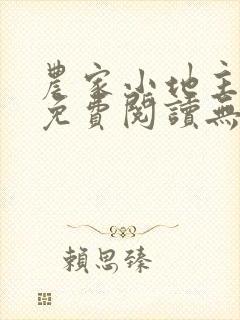 農家小地主
免費閱讀無
賴思臻